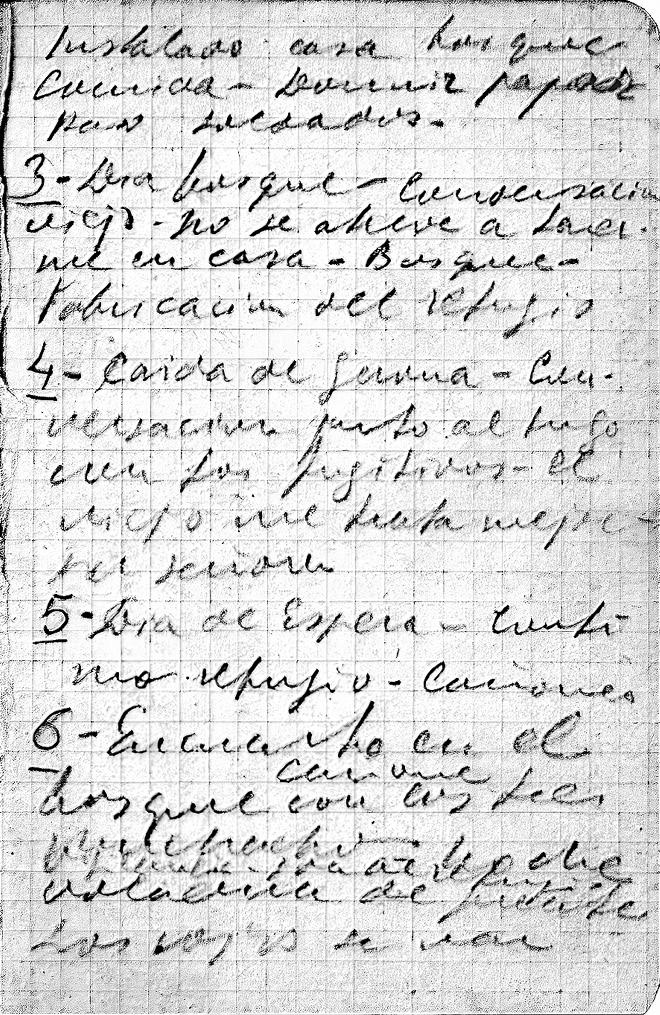 Instalado casa bosque
Comida - Dormir pajar
Paso soldados -
3 - Dia bosque - conversacion
viejo - no se atreve a tener-
me en casa - Bosque -
Fabricacion del refugio
4 - Caida de Gerona - Con-
versacion junto al fuego
con los fugitivos - el
viejo me trata mejor
su señora
5 - Dia de Espera - Conti
nuo refugio - Cañoneo
6 - Encuentro en el
cañoneo
bosque con los tres
muchachos - noche
voladura de puente
Los rojos se van